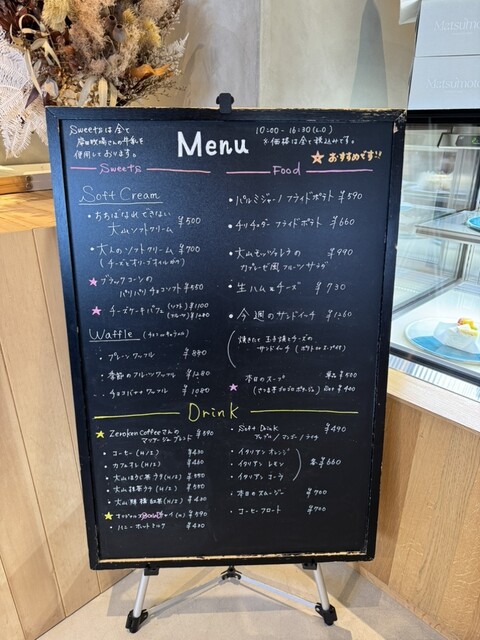 Matsumoto
Matsumoto
Sweetsは全て
牛乳を
使用しております。
Menu
10:00 - 16:30(L.O)
※価格は全て税込みです。
☆おすすめです!
Sweets
Soft Cream
・大山ソフトクリーム ¥500
・大人のソフトクリーム ¥700
(チーズとオリーブオイルがけ)
★ブラックコーンの
パリパリチョコソフト ¥550
★チーズケーキパフェ
Waffle
・プレーンワッフル ¥880
・季節のフルーツワッフル ¥1280
・チョコバナナワッフル ¥1080
Food
・パルミジャーノフライドポテト ¥590
・チリチェダーフライドポテト ¥660
・大山モッツァレラの ¥990
カプレーゼ風フルーツサラダ
・生ハム&チーズ ¥730
・今週のサンドイーチ ¥1260
焼きたて玉子焼とチーズの
サンドイーチ
★本日のスープ
Drink
★Zeroken Coffeeさんの
マンサージュブレンド
・コーヒー(H/I)
・カフェオレ(H/I)
・大山ほうじ茶ラテ(H/I)
・大山抹茶ラテ(H/I)
・ハニーホットミルク
・Soft Drink ¥490
アップル/マンゴー/
・イタリアンオレンジ
・イタリアンレモン 各¥660
・イタリアンコーラ
・本日のスムージー ¥700
・コーヒーフロート ¥700